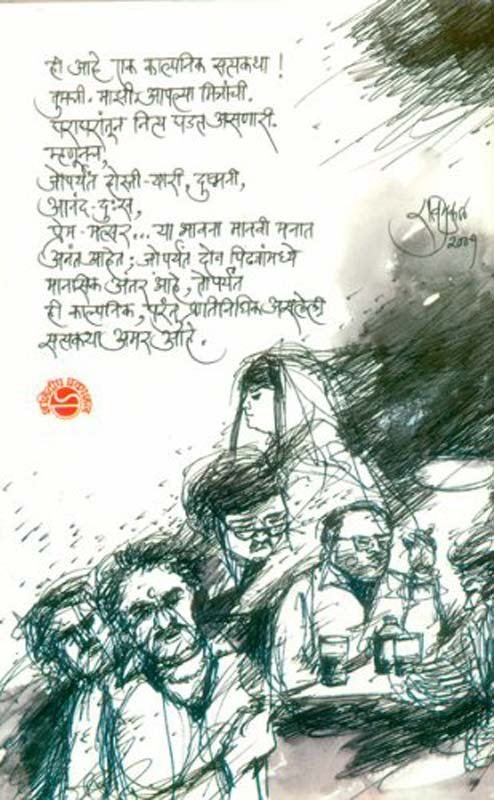 ही आहे एक काल्पनिक सत्यकथा !
तुमची, माझी, आपल्या मित्रांची.
घराघरांतून नित्य घडत असणारी.
म्हणूनच,
जोपर्यंत दोस्ती-यारी, दुष्मनी,
आनंद-दुःख,
प्रेम-मत्सर... या भावना मानवी मनात
अनंत आहेत; जोपर्यंत दोन पिढ्यांमध्ये
मानसिक अंतर आहे, तोपर्यंत
ही काल्पनिक, परंतु प्रातिनिधिक असलेली
सत्यकथा अमर आहे.
रविमुकुल
२००१